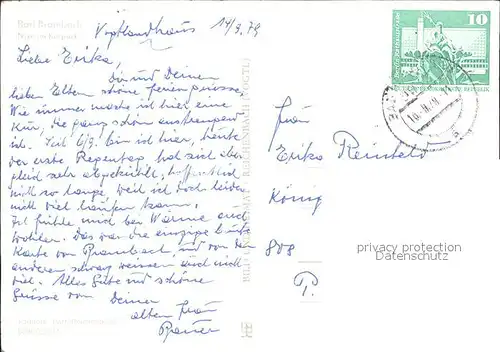 Bad Brambach
Vogtlandhaus 14/9.79
Liebe Erika,
Dir und Deinen
lieben Eltern schöne Feriengrüsse.
Wie immer mache ich hier eine
Kur, die ganz schön anstrengend
ist. Seit 6/9. bin ich hier, heute
der erste Regentag, hat sich aber
gleich sehr abgekühlt, hoffentlich
nicht so lange, weil ich doch leider
nicht viel laufen kann.
Ich fühle mich bei Wärme auch
wohler. Das war die einzige bunte
Karte von Brambach, und von den
anderen schwarz weissen auch nicht
viel. Alles Gute und schöne
Grüsse von Deiner
alten Frau
10
DEUTSCHE DEMOKRATISCHE REPUBLIK
Frau
Erika Reinfeld
König
808
privacy protection
Datenschutz
BILD UND HEIMAT REICHENBACH (VOGTL)